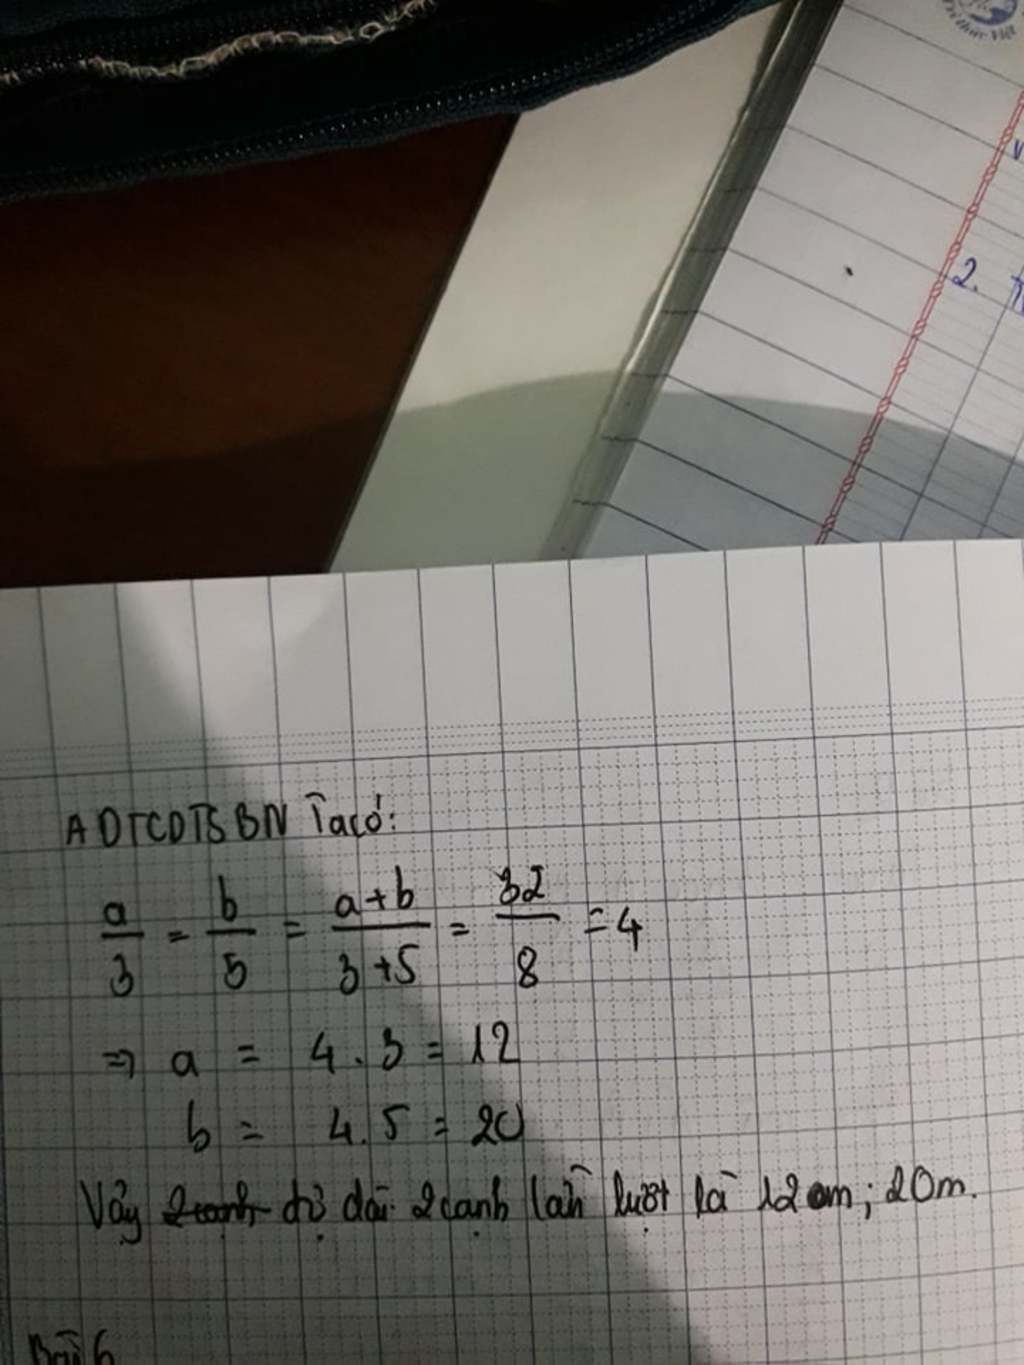 Trí thức Việt
2.
ADTCDTSBN Ta có:
a/3 = b/5 = a+b/3+5 = 32/8 = 4
⇒ a = 4.3 = 12
b = 4.5 = 20
Vậy 2 cạnh độ dài 2 cạnh lần lượt là 12 m; 20m.
Bài 6